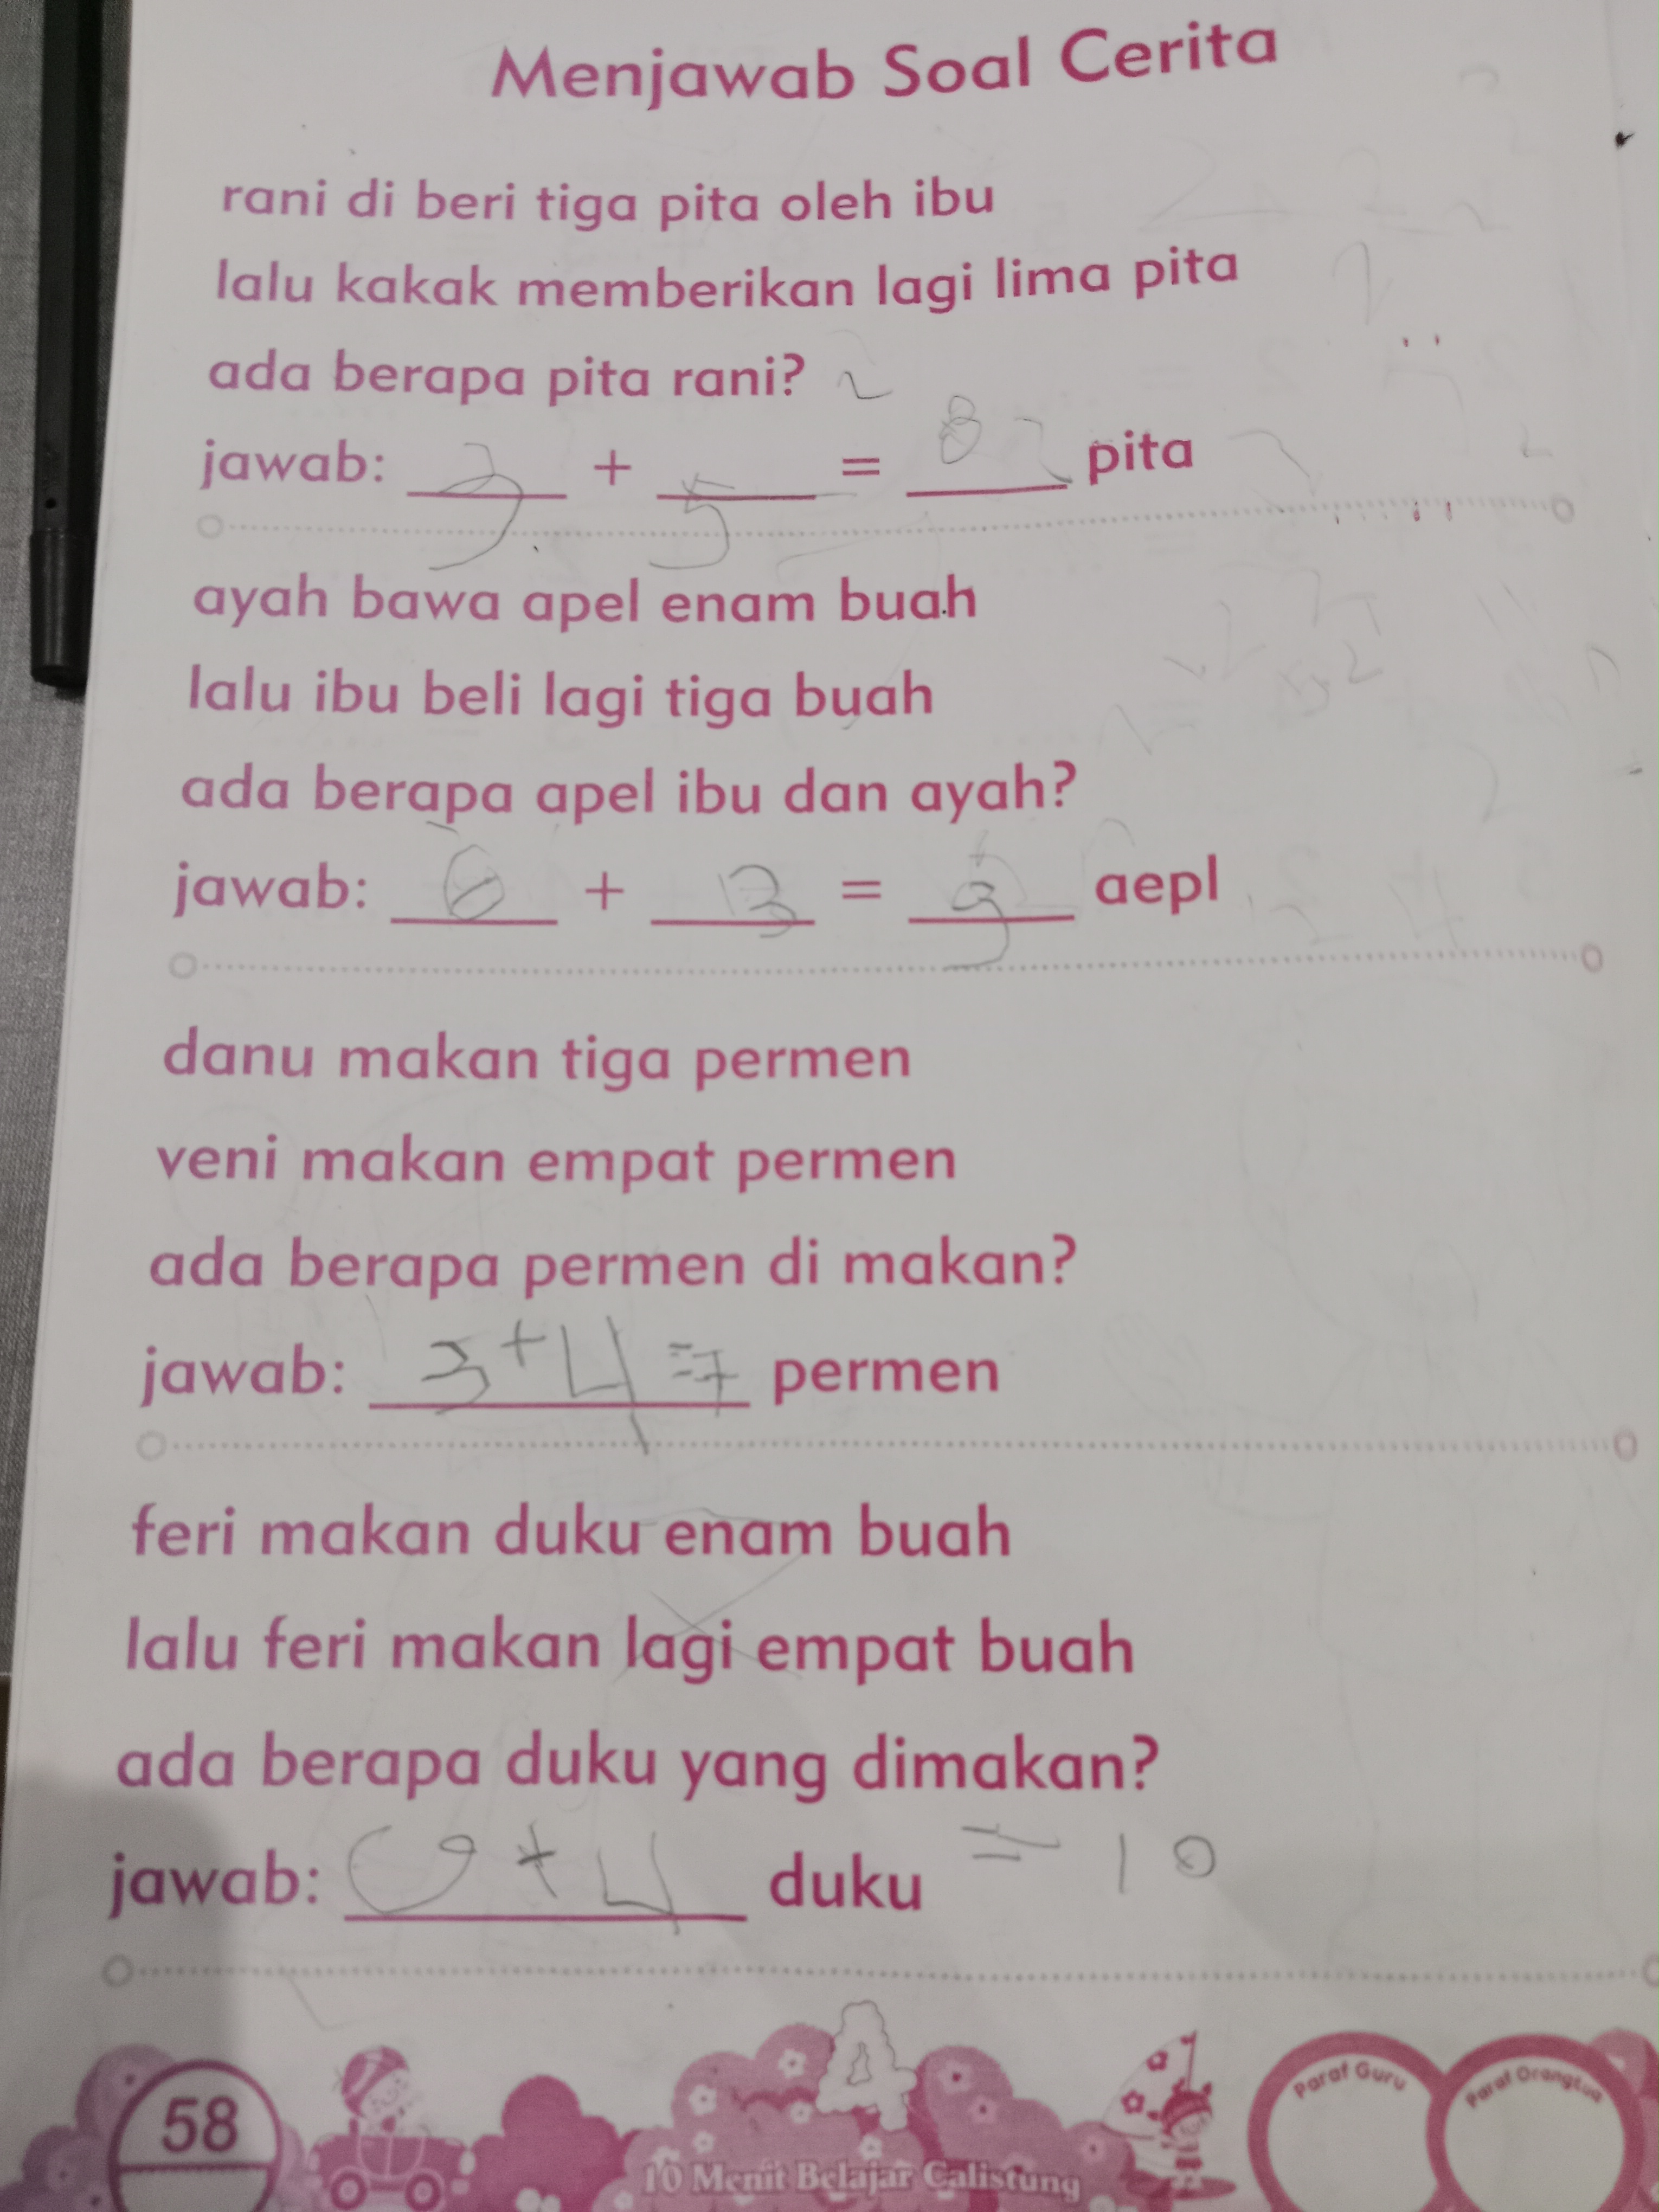 Menjawab Soal Cerita
rani di beri tiga pita oleh ibu
lalu kakak memberikan lagi lima pita
ada berapa pita rani?
jawab: 3 + 5 = 8 pita
ayah bawa apel enam buah
lalu ibu beli lagi tiga buah
ada berapa apel ibu dan ayah?
jawab: 6 + 3 = 9 aepl
danu makan tiga permen
veni makan empat permen
ada berapa permen di makan?
jawab: 3+4=7 permen
feri makan duku enam buah
lalu feri makan lagi empat buah
ada berapa duku yang dimakan?
jawab: 6+4 duku = 10
Paraf Guru
Paraf Orangtua
58
10 Menit Belajar Calistung